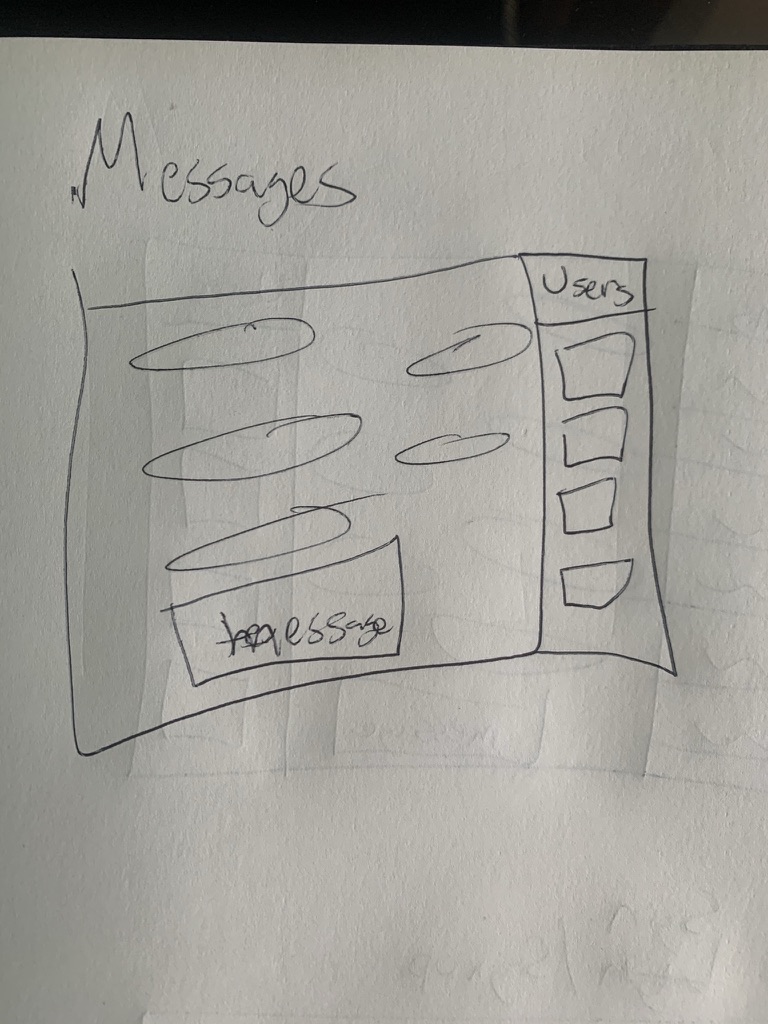 Messages
Users
message